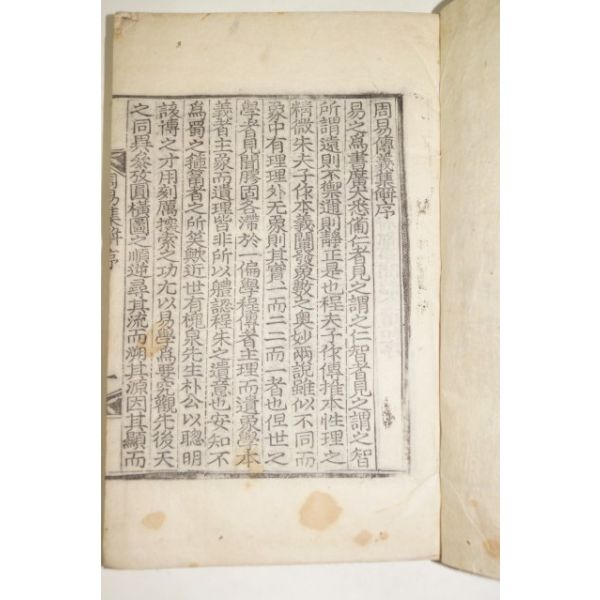 周易傳義集解序
易之爲書廣大悉備仁者見之謂之仁智者見之謂之智
所謂遠則不禦邇則靜正是也程夫子作傳推本性理之
精微朱夫子作本義闡發象數之奧妙兩說雖似不同而
象中有理理外无象則其實一而二二而一者也但世之
學者見聞膠固各滯於一偏學程傳者主理而遺象學本
義者主象而遺理皆非所以體認程朱之遺意也安知不
爲蜀之箍篰者之所笑歟近世有槐泉先生朴公以聰明
該博之才用刻厲探索之功尤以易學爲要究觀先後天
之同異叅攷圓橫圖之順逆尋其流而朔其源因其顯而
周易集解序
一